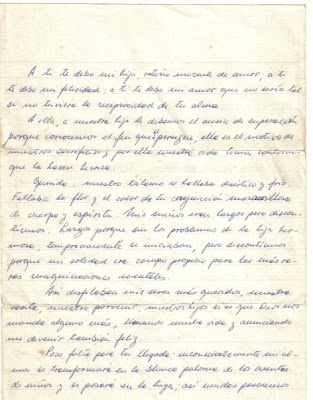 A ti te debo mi hija, retoño inocente de amor, a ti
te debo mi felicidad; a ti te debo mi amor que no sería tal
si no tuviera la reciprocidad de tu alma.
A ella, a nuestra hija le debemos el ansia de superación
porque conocemos el fin que persigue, ella es el motivo de
nuestro sacrificio y por ella nuestra vida toma contornos
que la hacen heroica.
Querida: nuestro tálamo se hallaba diurético y frío.
Faltaba la flor y el calor de tu conjunción maravillosa
de cuerpo y espíritu. Mis sueños eran largos pero discon-
tinuos. Largos porque sin los problemas de la hija her-
mosa, tempranamente se iniciaban, pero discontinuos
porque mi soledad era campo propicio para las más va-
rias imaginaciones mentales.
Así desfilaban mis seres más queridos, nuestra
casita, nuestro porvenir, nuestros hijos si es que Dios nos
manda alguno más, llenando nuestra vida y anunciando
un devenir también feliz.
Poco falta para tu llegada, inconscientemente mi al-
ma se transformará en la blanca paloma de los cuentos
de niños y se posará en la tuya; así unidas pasaremos